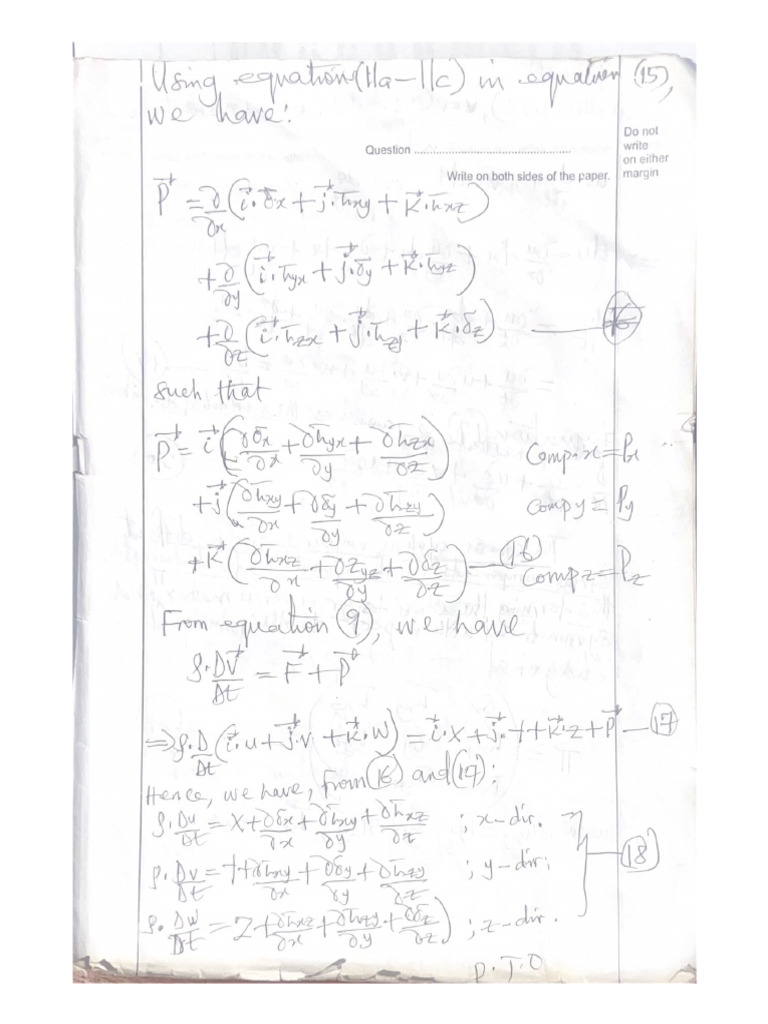 Using equation (11a-11c) in equation (15),
we have:
Do not
write
on either
margin
Question ..........................................
Write on both sides of the paper.
P⃗ = ∂/∂x (i⃗.σx + j⃗.τxy + k⃗.τxz)
+ ∂/∂y (i⃗.τyx + j⃗.σy + k⃗.τyz)
+ ∂/∂z (i⃗.τzx + j⃗.τzy + k⃗.σz) —— 16
such that
P⃗ = i⃗ (∂σx/∂x + ∂τyx/∂y + ∂τzx/∂z) Comp x = Px
+ j⃗ (∂τxy/∂x + ∂σy/∂y + ∂τzy/∂z) Comp y = Py
+ k⃗ (∂τxz/∂x + ∂Zyz/∂y + ∂σz/∂z) — (16) Comp z = Pz
From equation (9), we have
ρ.DV⃗/Dt = F⃗ + P⃗
⇒ ρ.D/Dt (i⃗.u + j⃗.v + k⃗.w) = i⃗.X + j⃗.Y + k⃗.Z + P⃗ — (17)
Hence, we have, from (16) and (17);
ρ.Du/Dt = X + ∂σx/∂x + ∂τxy/∂y + ∂τxz/∂z ; x-dir.
ρ.Dv/Dt = Y + ∂τxy/∂x + ∂σy/∂y + ∂τzy/∂z ; y-dir; — (18)
ρ.Dw/Dt = Z + ∂τxz/∂x + ∂τzy/∂y + ∂σz/∂z) ; z-dir.
P.T.O